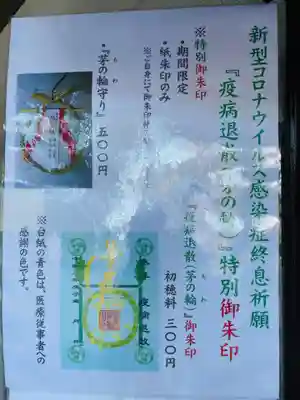 新型コロナウイルス感染症終息祈願
『疫病退散(茅の輪)』特別御朱印
※特別御朱印
・期間限定
・紙朱印のみ
※ご自身にて御朱印帳
・『茅の輪守り』 五〇〇円
ちわ
『疫病退散(茅の輪)』御朱印
ちわ
初穂料 三〇〇円
疫病退散
※台紙の青色は、医療従事者への
感謝の色です。